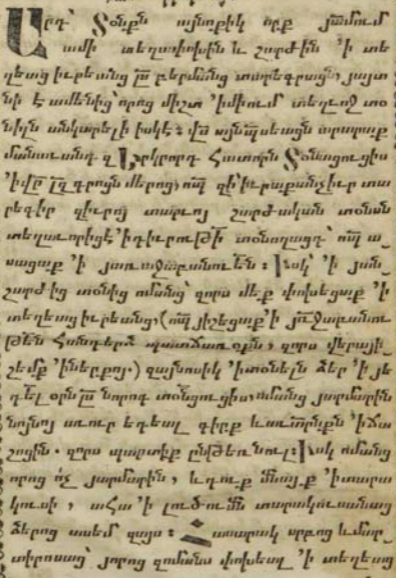 Արդ՝ Տօնքն այնոքիկ որք յամում
ամի տեղափոխին և շարժին ՚ի տե
ղեաց իւրեանց ըստ բերմանց տարեգրացն, յայտ
նի է ամենից որոց միշտ ՚իմիում տեղւոջ տօ
նիլն անկարելի իսկէ: վս այնպսեացն արարաք
մանաւանդ զԵրկրորդ Հատորն Տօնացուցիս
՚ի վր գրոցն մերոց, որ զի՚իւրաքանչիւր տա
րեգիր զիւրոյ տարւոյ շարժական տօնսն
տեղաւորիցէ՚ի դիւրութի տօնողացդ՝ որպ ա
սացաք ՚ի յառաջաբանութեն: Իսկ՝ ՚ի յան
շարժից տօնից ոմանց՝ զորս մեք փոխեցաք ՚ի
տեղեաց իւրեանց, (որպ յիշեցաք՚ի յռջաբանու
թեն Հանդերձ պատճառօքն, զորս վերայի
շեմք ՚իներքոյ) զայնոսիկ ՚իտօնելն ձեր ՚ի յե
դէլ օրն ըստ նորոգ տօնցուցիս, ոմանց յարմարին
նոյնոյ աւուր եդեալ գիրք և աւետրնքն ՚իՃա
շոցին. զորս պարտիք ընթեռնուլ: Իսկ ոմանց
որոց ոչ յարմարին, և դուք մնայք ՚իտարա
կուսի, ահա ՚ի լուծումն տարակուսանաց
ձերոց ասեմ զայս: տաւարակ սրբոց և մար
տիրոսաց՝ յորոց զոմանս փոխեալ ՚ի տեղեաց